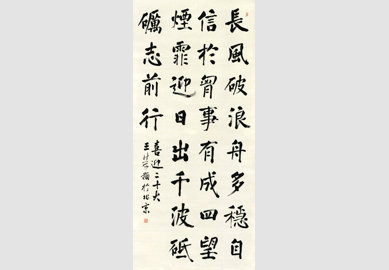 長風破浪舟多穩自
信於胷事有成四望
煙霏迎日出千波砥
礪志前行
喜迎二十大
王於北京